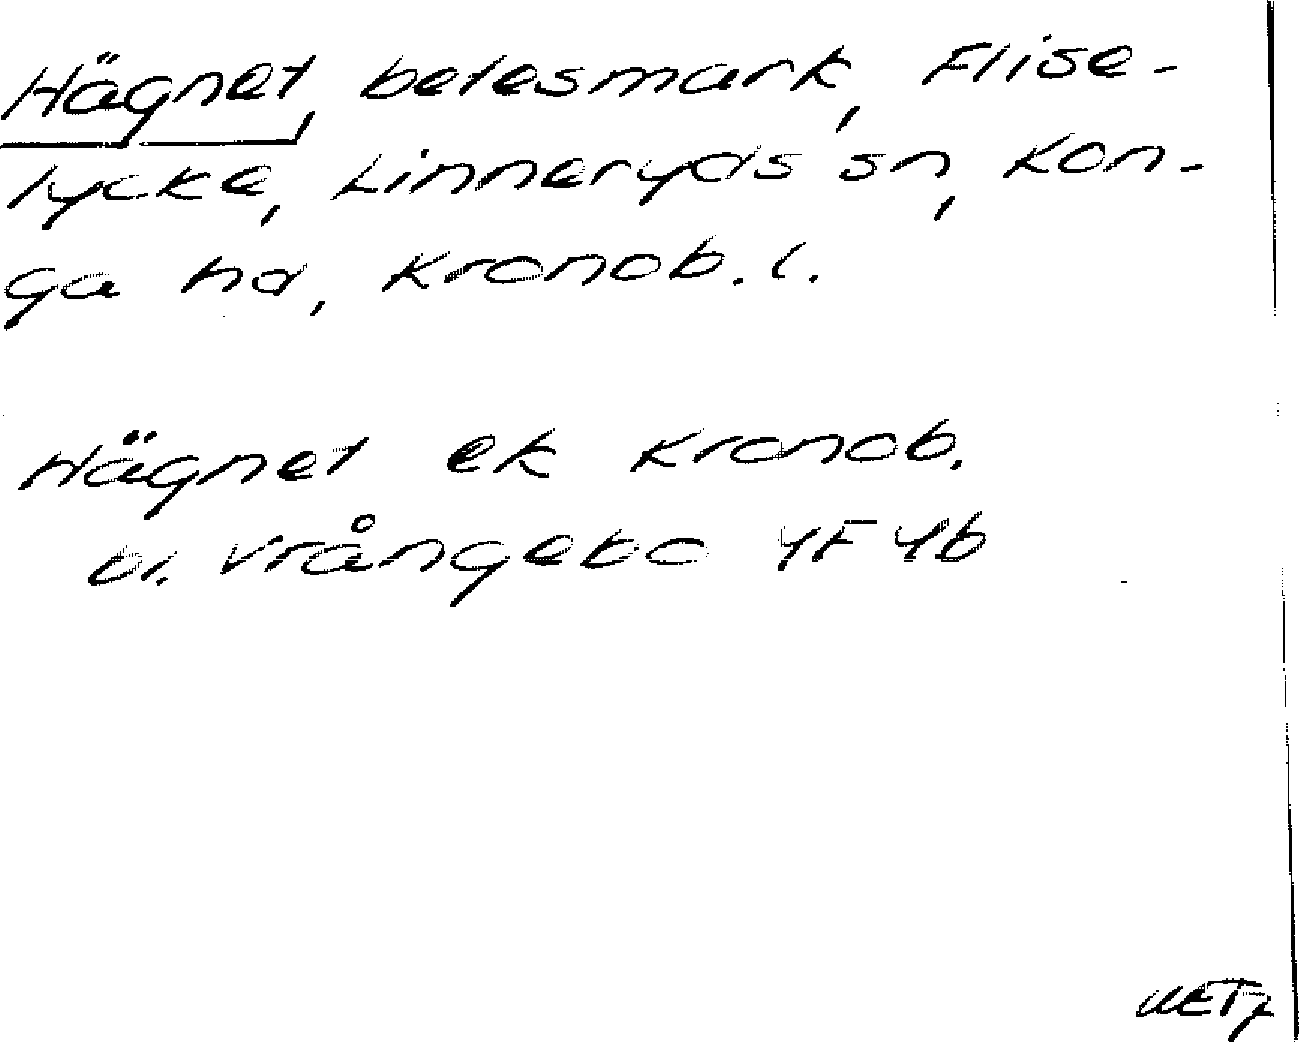 Hägnet, betesmark, Flise-
lycke, Linneryds sn, Kon-
ga hd, Kronob. l.
Hägnet ek Kronob.
bl. Vrångebo 4F 4b